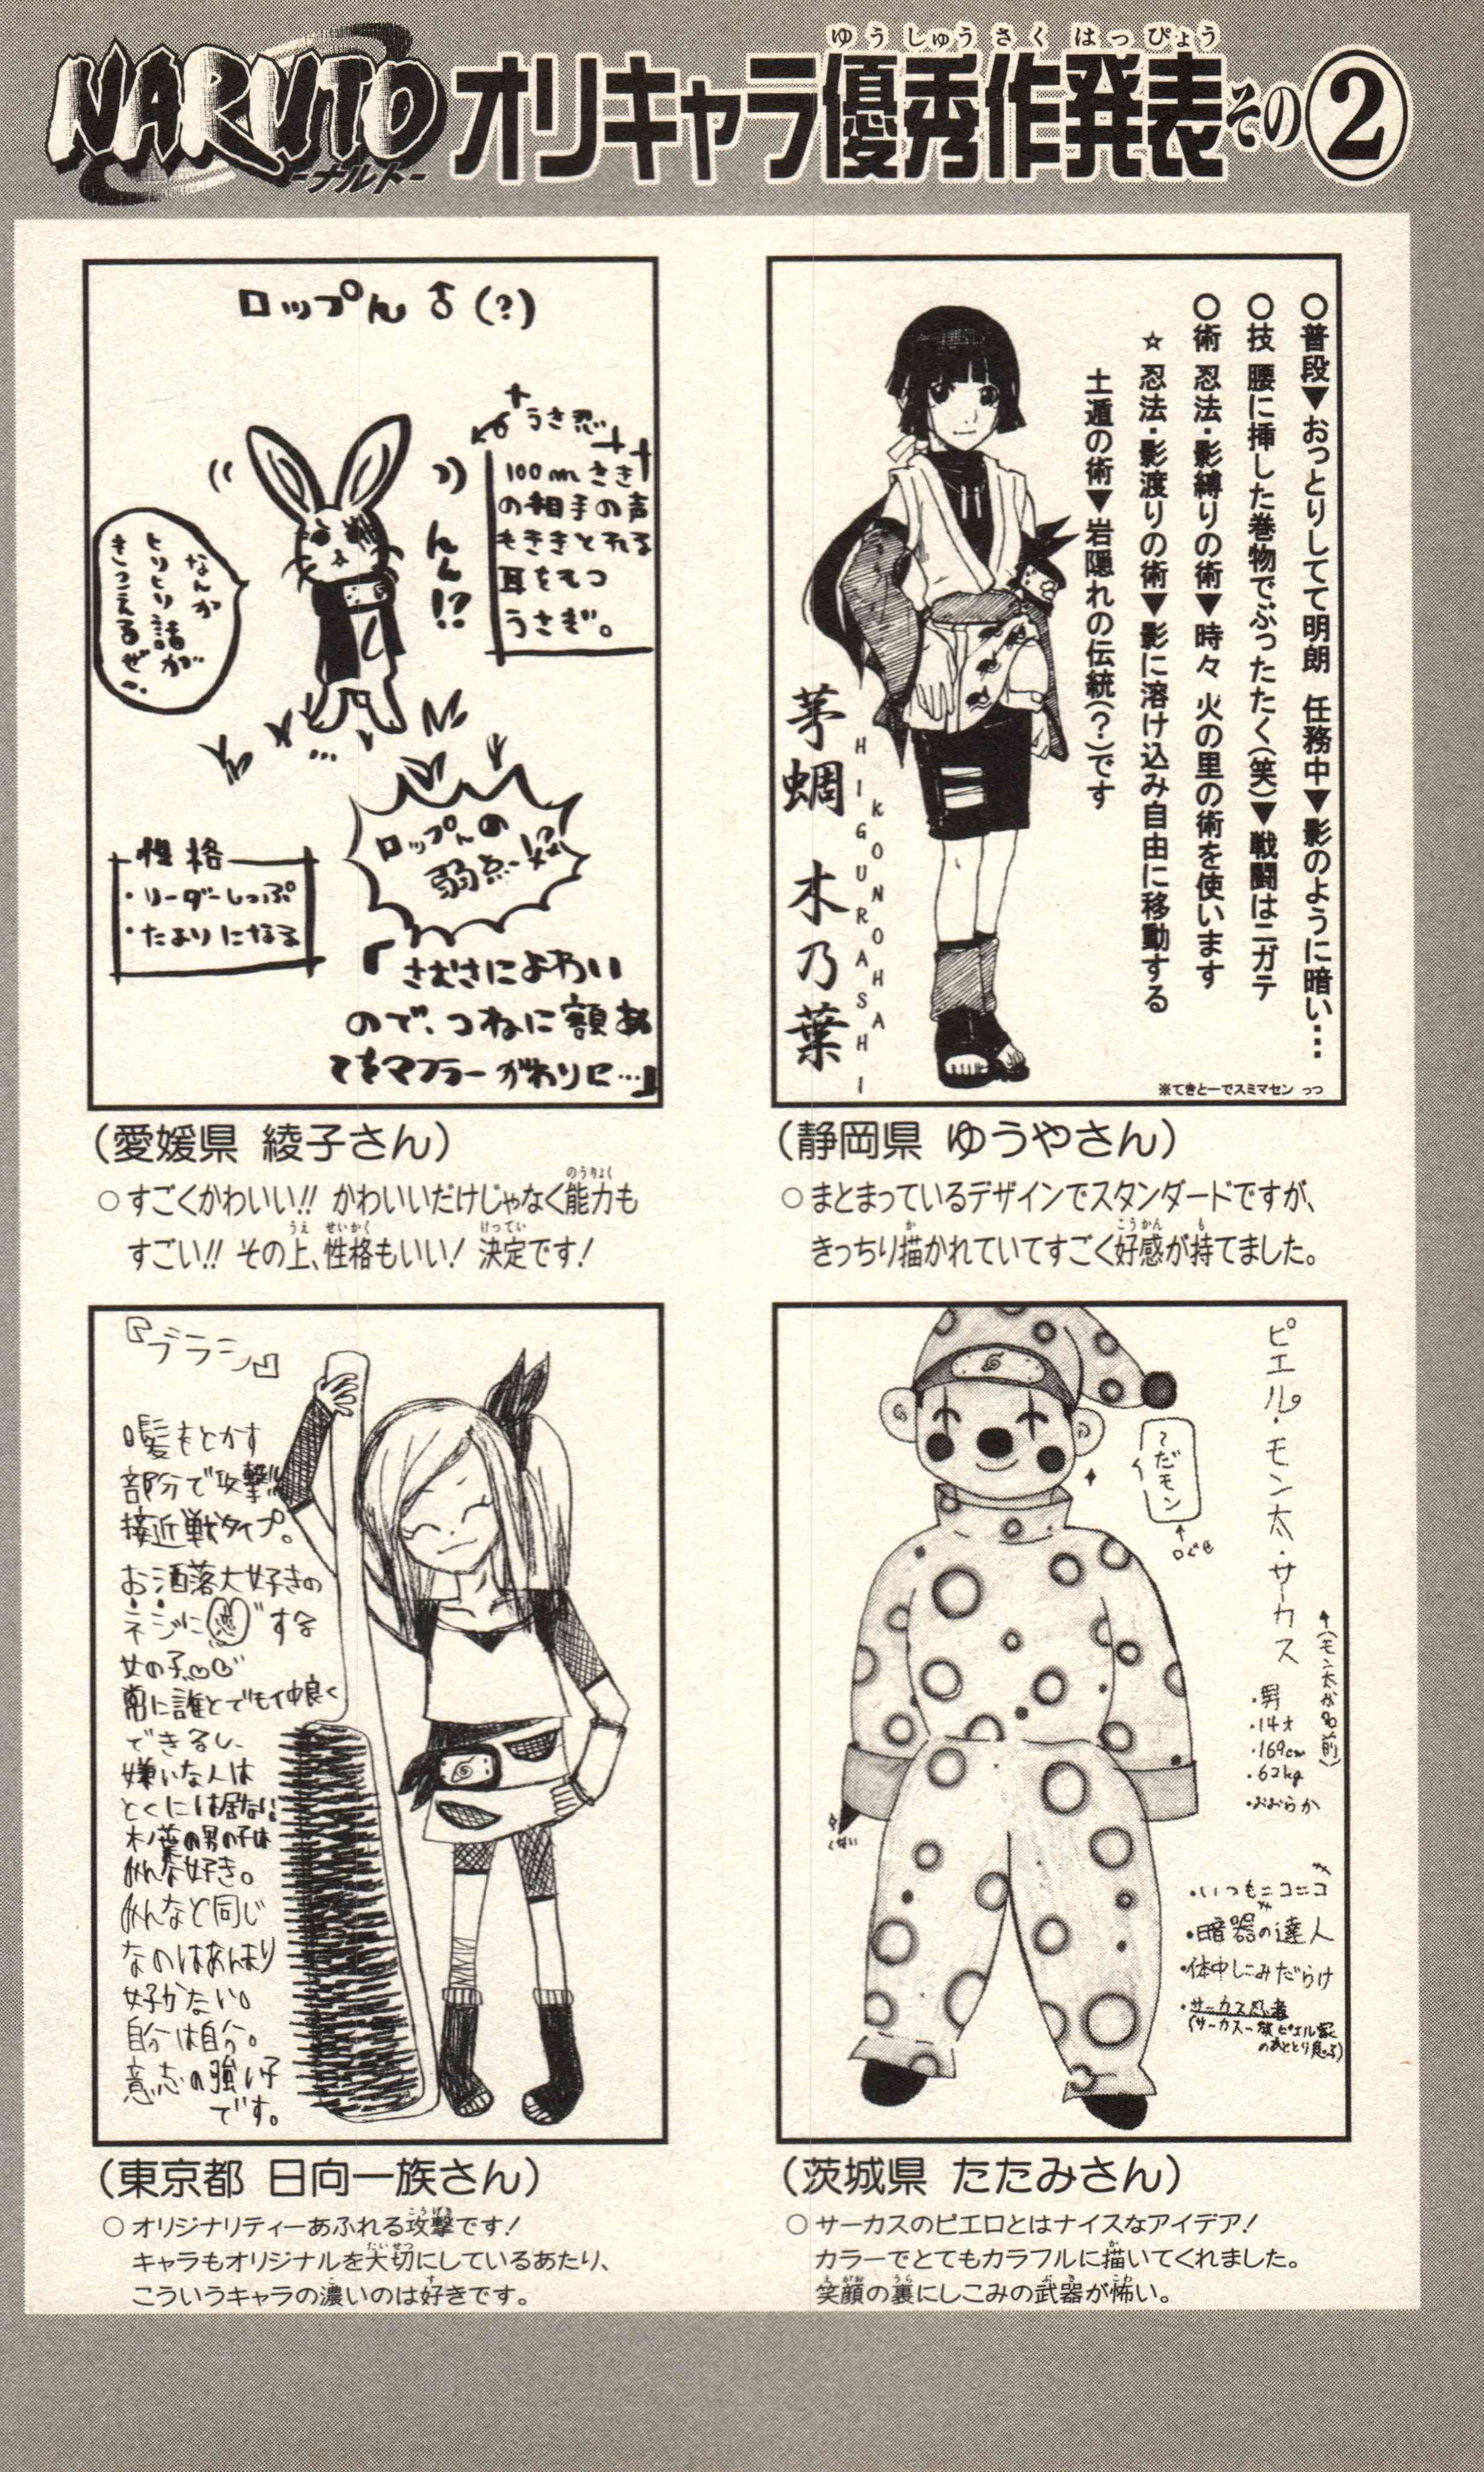 ゆうしゅうさくはっぴょう
NARUTO
-ナルト-
オリキャラ優秀作発表その②
○普段▼おっとりしてて明朗 任務中▼影のように暗い…
○技 腰に挿した巻物でぶったたく(笑)▼戦闘はニガテ
○術 忍法・影縛りの術▼時々 火の里の術を使います
☆忍法・影渡りの術▼影に溶け込み自由に移動する
土遁の術▼岩隠れの伝統(?)です
茅蜩 木乃葉
HIGURASHI
KONOHA
※てきとーでスミマセン っつ
(静岡県 ゆうやさん)
○まとまっているデザインでスタンダードですが、
きっちり描かれていてすごく好感が持てました。
ロップん♂(?)
うさ忍
100mさき
の相手の声
もききとれる
耳をもつ
うさぎ。
んん!?
なんか
ヒソヒソ話が
きこえるぜ〜
ロップんの
弱点!!
性格
・リーダーしっぷ
・たよりになる
「さむさによわい
ので、つねに額あ
てをマフラーがわりに…」
(愛媛県 綾子さん)
○すごくかわいい!! かわいいだけじゃなく能力も
すごい!! その上、性格もいい! 決定です!
ピエル・モン太・サーカス
↑(モン太が名前)
〜だモン
↑口ぐせ
・男
・14才
・169cm
・62kg
・おおらか
くない
・いつもニコニコ
・暗器の達人
・体中しこみだらけ
・サーカス忍者
(サーカス一族ピエル家
のあととり息子)
(茨城県 たたみさん)
○サーカスのピエロとはナイスなアイデア!
カラーでとてもカラフルに描いてくれました。
笑顔の裏にしこみの武器が怖い。
『ブラシ』
髪をとかす
部分で攻撃!!
接近戦タイプ。
お洒落大好きの
ネジに恋する
女の子
常に誰とでも仲良く
できるし、
嫌いな人は
とくには居ない。
木ノ葉の男の子は
みんな好き。
みんなと同じ
なのはあんまり
好かない。
自分は自分。
意志の強い子
です。
(東京都 日向一族さん)
○オリジナリティーあふれる攻撃です!
キャラもオリジナルを大切にしているあたり、
こういうキャラの濃いのは好きです。